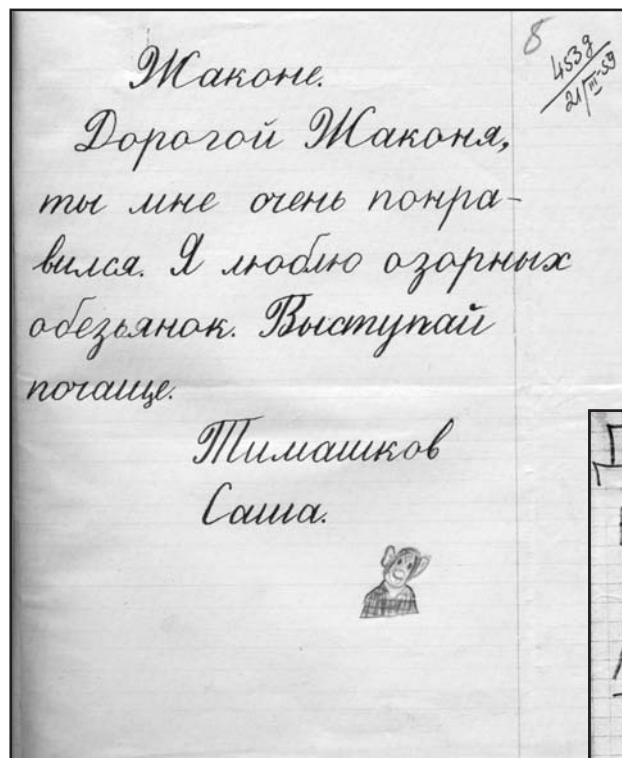 8
453 д
21/III-59
Жаконе.
Дорогой Жаконя,
ты мне очень понра-
вился. Я люблю озорных
обезьянок. Выступай
почаще.
Тимашков
Саша.